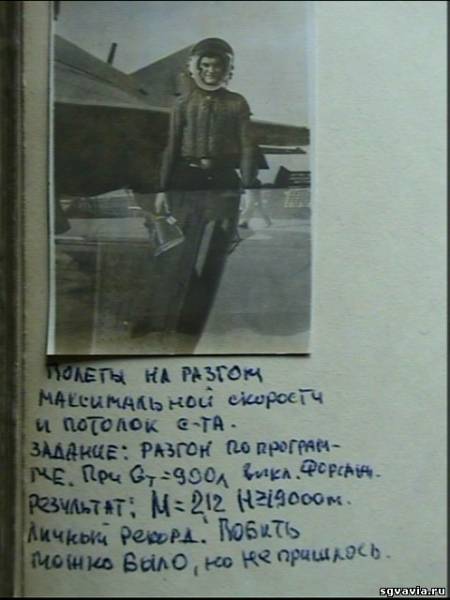 ПОЛЕТЫ НА РАЗГОН
МАКСИМАЛЬНОЙ СКОРОСТИ
И ПОТОЛОК С-ТА.
ЗАДАНИЕ: РАЗГОН ПО ПРОГРАМ-
МЕ. ПРИ Gт=900л выкл. ФОРСАЖ.
РЕЗУЛЬТАТ: М=2,12 H=19000м.
ЛИЧНЫЙ РЕКОРД. ПОБИТЬ
МОЖНО БЫЛО, НО НЕ ПРИШЛОСЬ.
sgvavia.ru